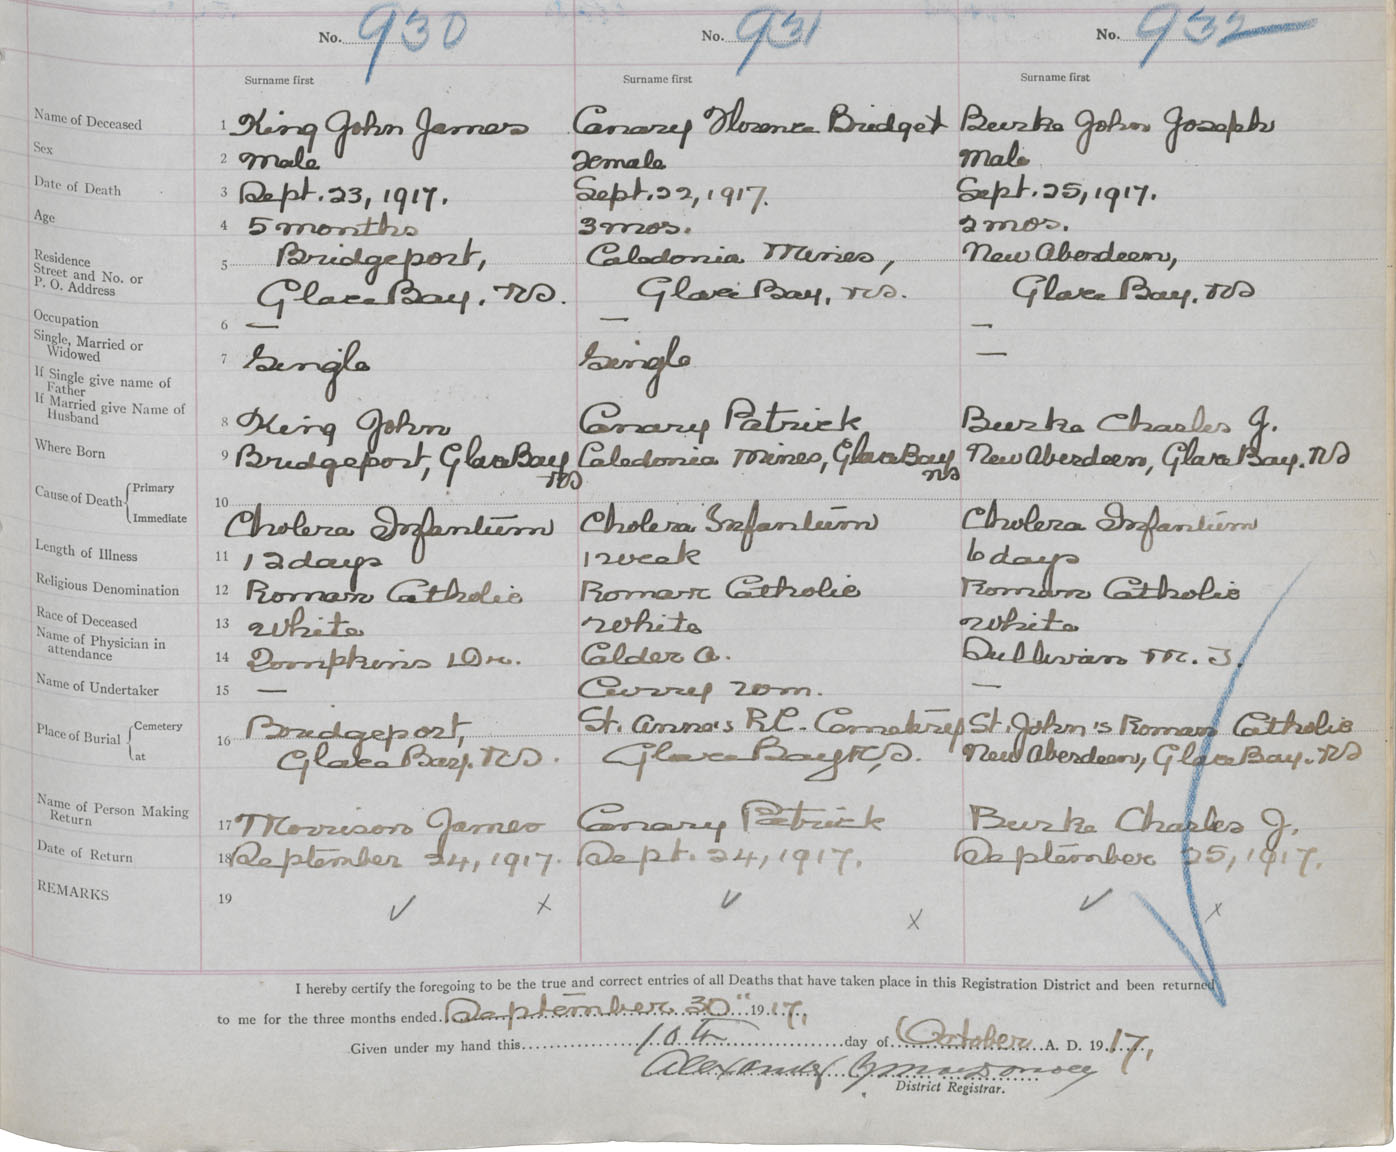 No. 930 No. 931 No. 932
Surname first Surname first Surname first
Name of Deceased 1 King John James Canary Florence Bridget Burke John Joseph
Sex 2 Male Female Male
Date of Death 3 Sept. 23, 1917. Sept. 22, 1917. Sept. 25, 1917.
Age 4 5 months 3 mos. 2 mos.
Residence Street and No. or P. O. Address 5 Bridgeport, Caledonia Mines, New Aberdeen,
Glace Bay. NS. Glace Bay, NS. Glace Bay. NS
Occupation 6 — — —
Single, Married or Widowed 7 Single Single —
If Single give name of Father
If Married give Name of Husband 8 King John Canary Patrick Burke Charles J.
Where Born 9 Bridgeport, Glace Bay NS Caledonia Mines, Glace Bay NS New Aberdeen, Glace Bay. NS
Cause of Death { Primary 10
Immediate Cholera Infantum Cholera Infantum Cholera Infantum
Length of Illness 11 12 days 1 week 6 days
Religious Denomination 12 Roman Catholic Roman Catholic Roman Catholic
Race of Deceased 13 White White White
Name of Physician in attendance 14 Tompkins Dr. Calder A. Sullivan M. J.
Name of Undertaker 15 — Curry Wm. —
Place of Burial { Cemetery 16 Bridgeport, St. Anne's R.C. Cemetery St. John's Roman Catholic
at Glace Bay. NS. Glace Bay N.S. New Aberdeen, Glace Bay. NS
Name of Person Making Return 17 Morrison James Canary Patrick Burke Charles J.
Date of Return 18 September 24, 1917. Sept. 24, 1917. September 25, 1917.
REMARKS 19 ✓ x ✓ x ✓ x
I hereby certify the foregoing to be the true and correct entries of all Deaths that have taken place in this Registration District and been returned
to me for the three months ended September 30" 1917,
Given under my hand this 10th day of October A. D. 1917,
Alexander
District Registrar.